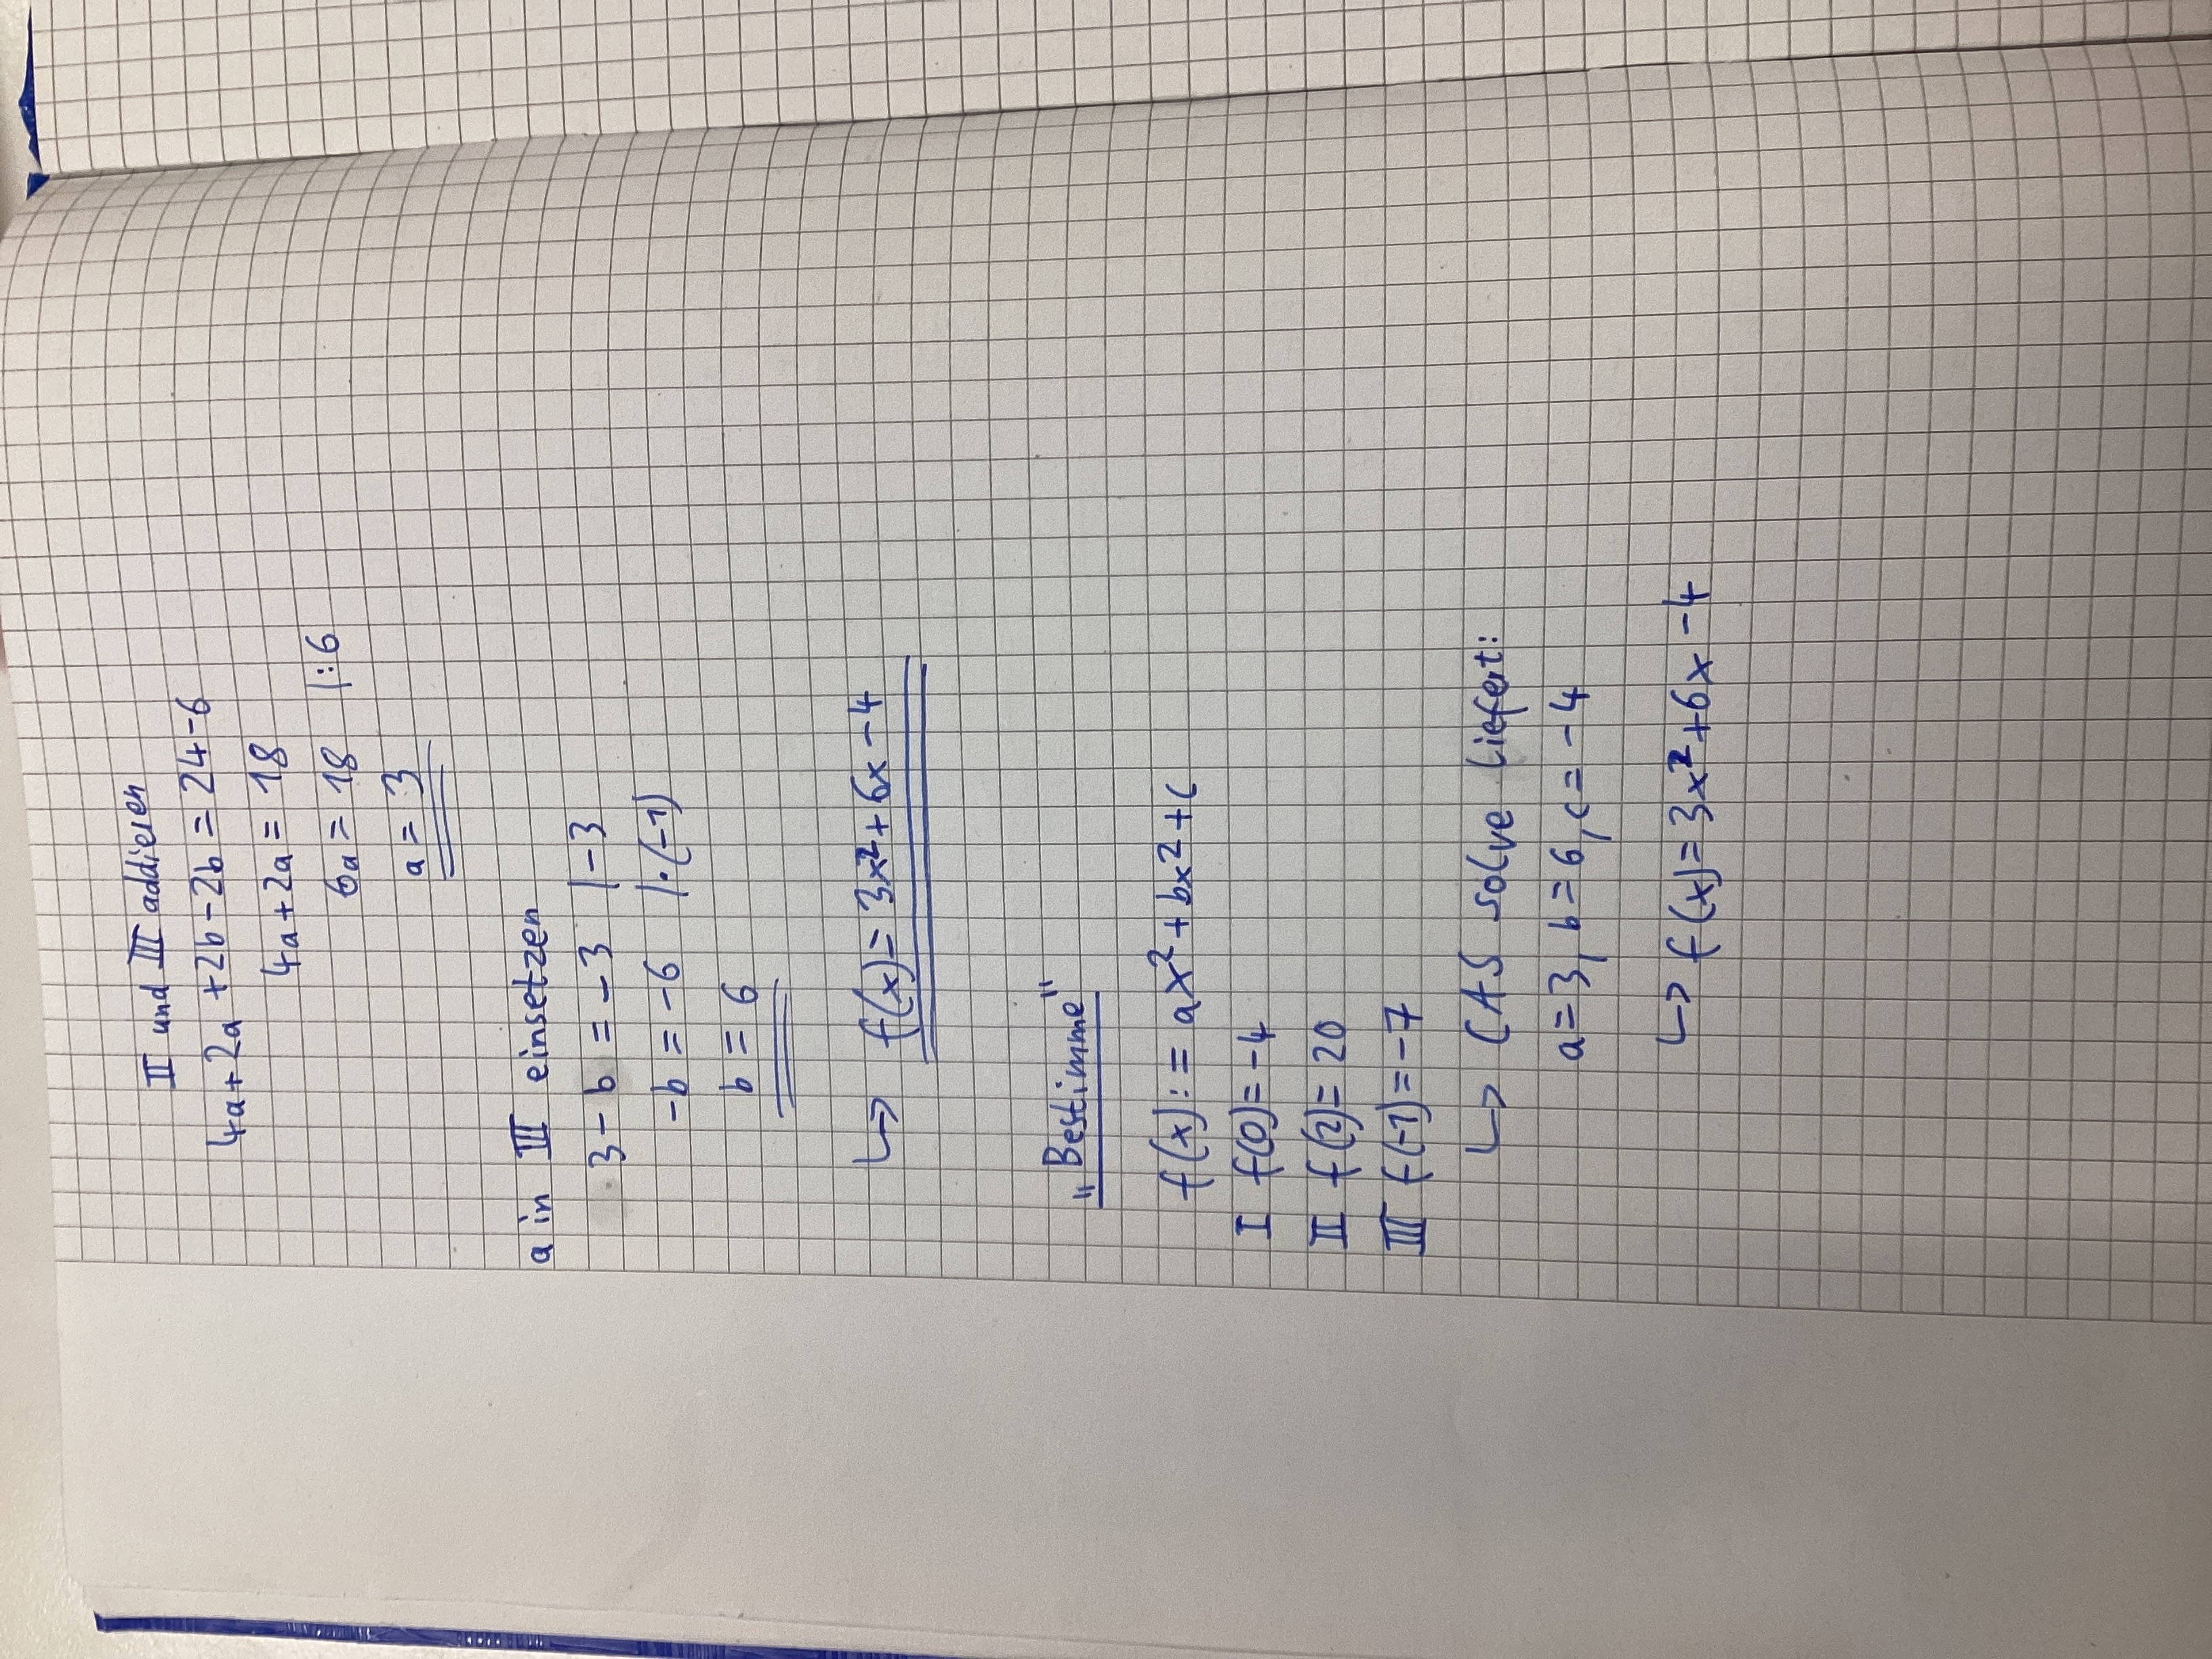 II und III addieren
4a+2a +2b-2b = 24-6
4a+2a = 18
6a = 18 |:6
a = 3
a in III einsetzen
3-b = -3 |-3
-b = -6 |·(-1)
b = 6
↳ f(x)= 3x²+6x-4
"Bestimme"
f(x):= ax²+bx2+c
I f(0)=-4
II f(2)=20
III f(-1)=-7
↳ CAS solve liefert:
a=3, b=6, c=-4
↳ f(x)=3x²+6x-4